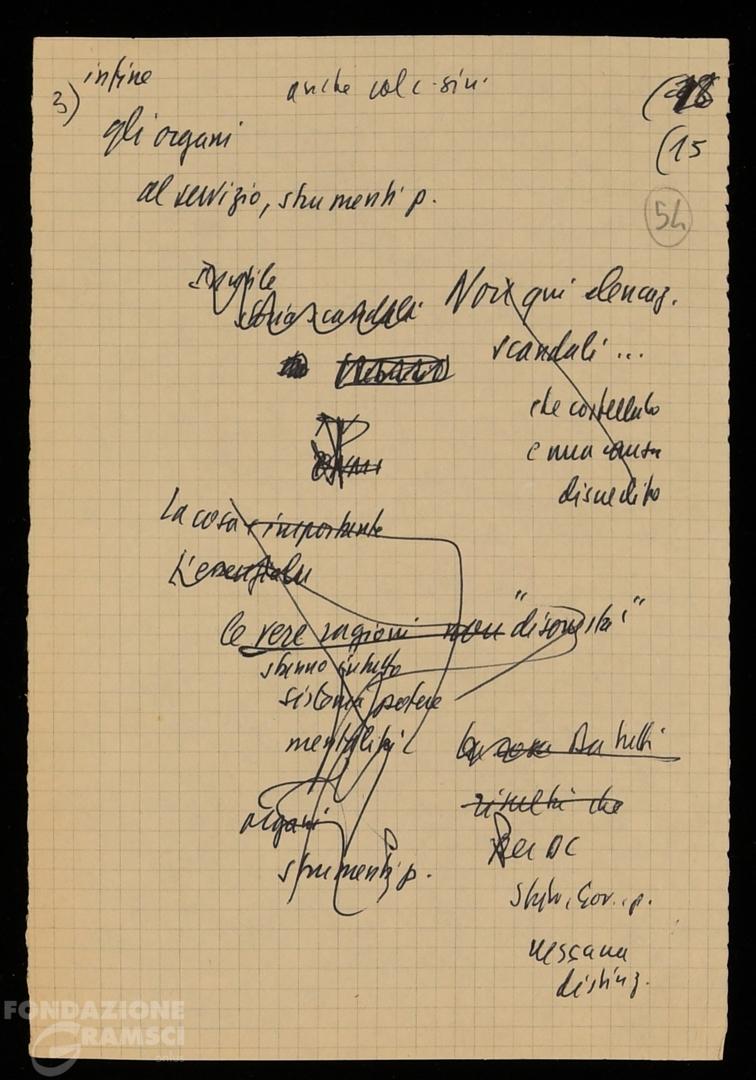 3) infine
anche col c. sin.
(18
(15
gli organi
al servizio, strumenti p.
54
storia scandali
Non qui elencaz.
scandali ...
che costellato
e una causa
discredito
La cosa importante
L'essenziale
le vere ragioni non "disonestà"
stanno in tutto
sistema potere
mentalità
Da tutti
risulta che
organi
Per DC
strumenti p.
Stato, Gov., p.
nessuna
distinz.
FONDAZIONE
GRAMSCI
onlus